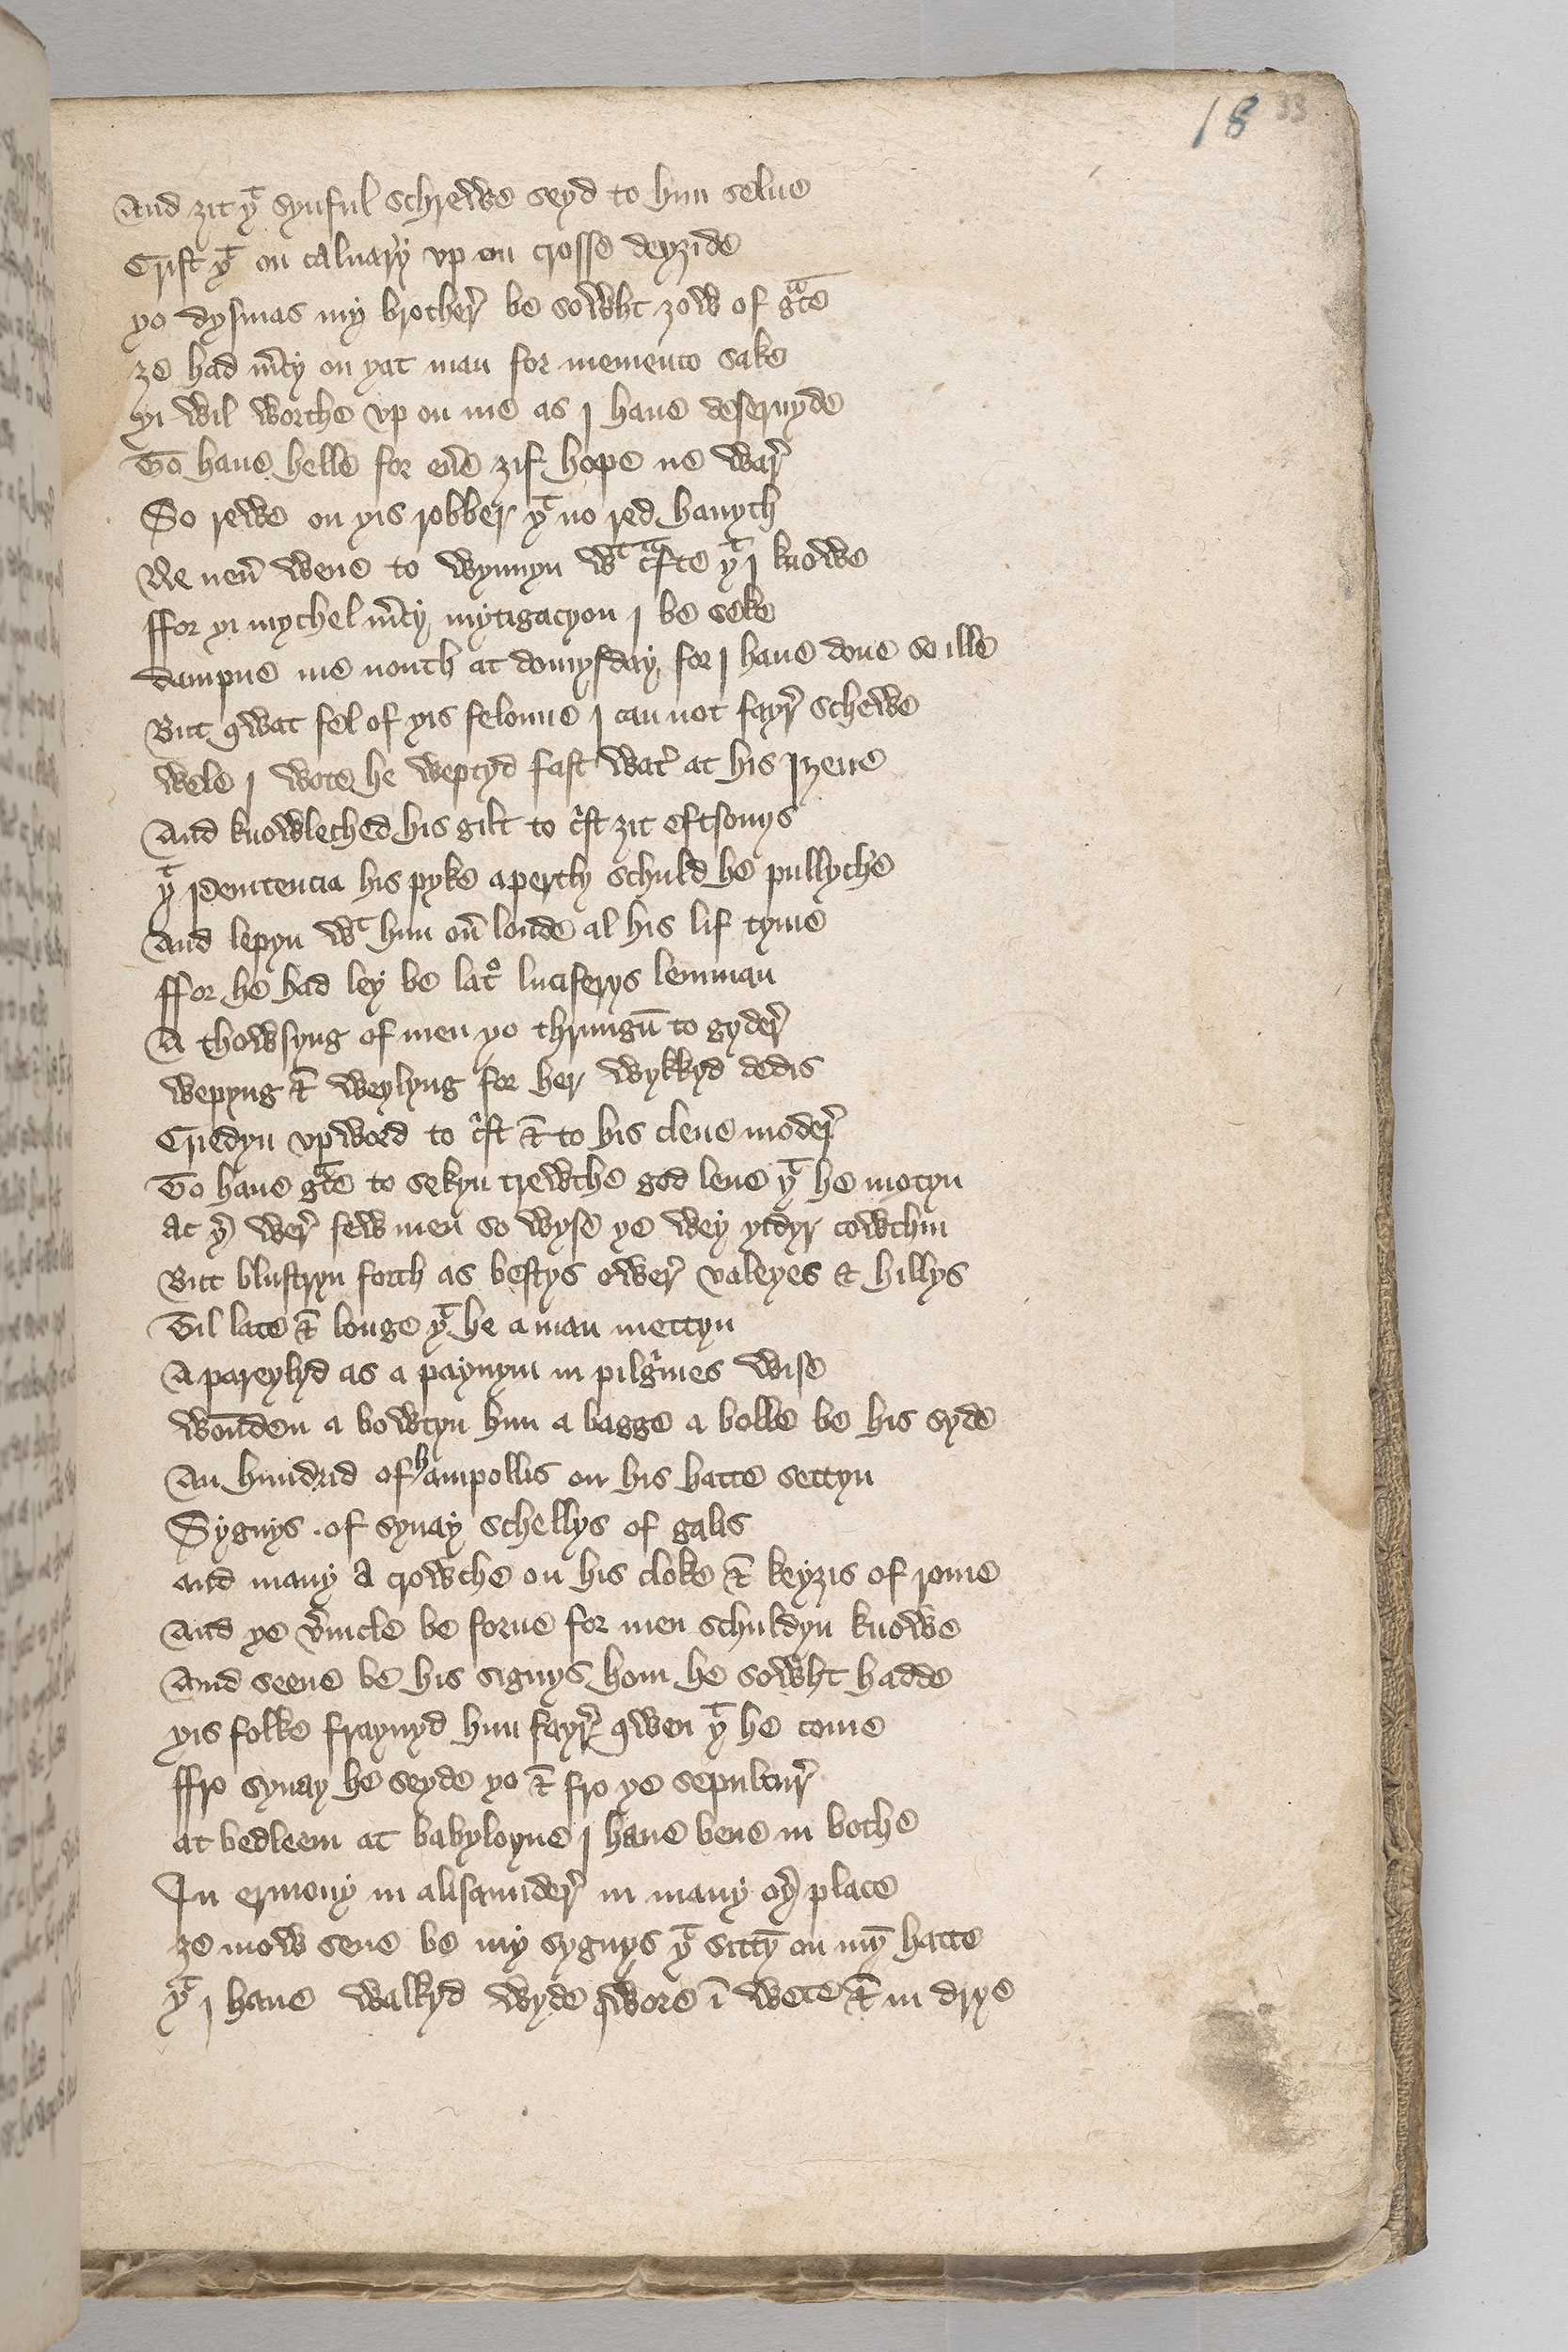 18 33
And zit yͭ synful schrewe seyd to hym selue
Crist yͭ on caluary vp on crosse deyzide
yo dysmas my broþer̉ be sowht zow of gᵃce
ze had m̉cy on yat man for memento sake
yi wil worche vp on me as j haue deseruyde
To haue helle for eủe zif hope ne war̉
So rewe on yis robber yͭ no red hauyth
Ne neủ wene to wynnyn wͭ cᵃfte yͭ j knowe
ffor yi mychel m̉cy mytigacyon j be seke
dampne me nouth at domysday for j haue done so ille
But qwat fel of yis felonne j can not fayr̉ schewe
wele j wote he weptyd fast wat̉ at his jzene
And knowleched his gilt to cⁱst zit eftsonys
yͭ penitencia his pyke apertly schuld he pullyche
And lepyn wͭ hym oủ londe al his lif tyme
ffor he had ley be latᵒ luciferys lemman
A thowsyng of men yo thrungū to gyder̉
wepyng & weylyng for her wykkyd dedis
Criedyn vpword to cⁱst & to his clene moder̉
To haue gᵃce to sekyn trewthe god leue yͭ he motyn
At ỷ wer̉ few men so wyse ye wey yidyr cowthin
But blustryn forth as bestys ower̉ valeyes & hillys
Til late & longe yͭ he a man mettyn
A pareylyd as a paynym in pilgⁱmes wise
wōnden a bowtyn hym a bagge a bolle be his syde
An hundrid of hampollis on his hatte settyn
Sygnys . of synay schellys of galis
and many A crowche on his cloke & keyzis of rome
And ye v̉nicle be forne for men schuldyn knowe
And seene be his signys hom he sowht hadde
yis folke fraynyd hym fayr̉ qwen yͭ he come
ffro synay he seyde yo & fro ye sepulcur̉
at bedleem at babyloyne j haue bene in bothe
In ermony in alisaunder̉ in many oỷ place
ze mow sene be my sygnys yͭ sittȳ on mȳ hatte
yͭ j haue walkyd wyde qwore ī wete & in drye